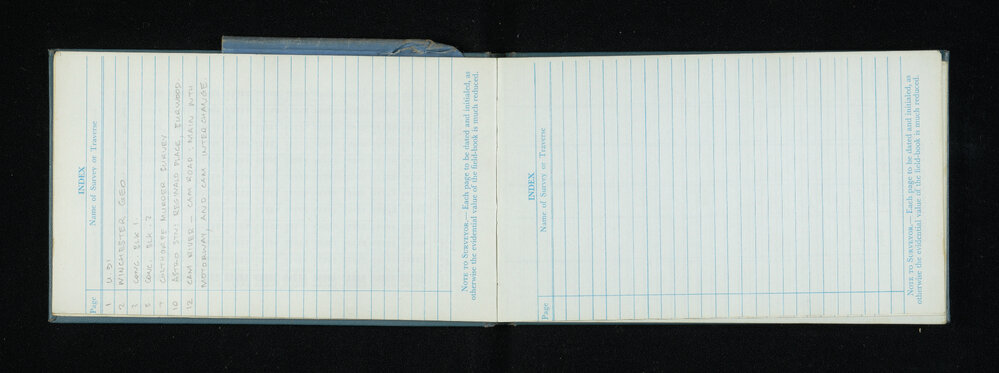 INDEX
Page Name of Survey or Traverse
1 U. DI
2 WINCHESTER GEO.
3 CONC BLK 1
5 CONC. BLK 2
7 CALTHORPE MURDER SURVEY
10 ASTRO STN: REGINALD PLACE, BURWOOD.
12 CAM RIVER - CAM ROAD. MAIN NTH
MOTORWAY, AND CAM INTERCHANGE.
NOTE TO SURVEYOR.— Each page to be dated and initialed, as
otherwise the evidential value of the field-book is much reduced.
INDEX
Page Name of Survey or Traverse
NOTE TO SURVEYOR.— Each page to be dated and initialed, as
otherwise the evidential value of the field-book is much reduced.